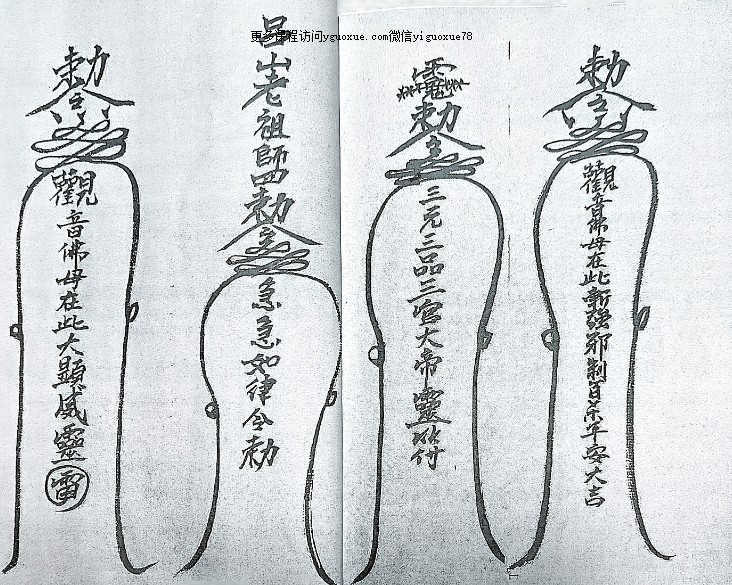 更多课程访问yguoxue.com微信yiguoxue78
勅令
觀音佛母在此斬強邪制百煞平安大吉
靈
勅令
三元三品三官大帝靈符付
呂山老祖師勅令
急急如律令勅
勅令
觀音佛母在此大顯威靈
雷